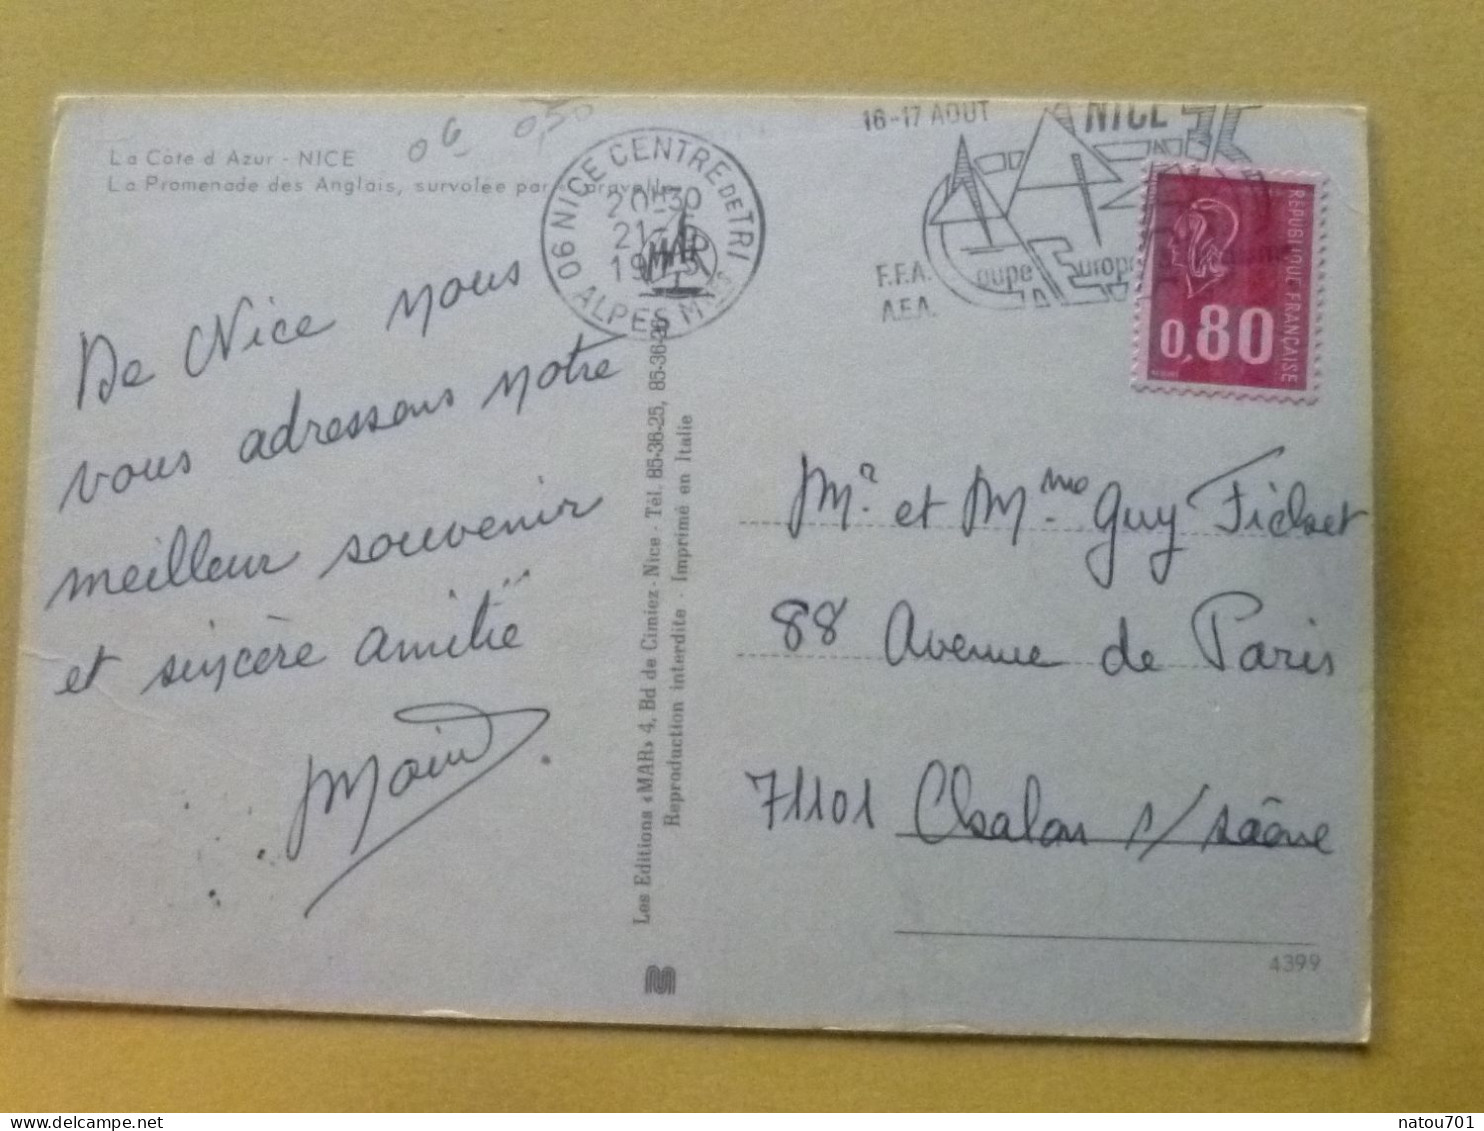 La Côte d Azur - NICE
La Promenade des Anglais, survolée par
06 0,50
06 NICE CENTRE DE TRI
20H30
21-
19
ALPES Mmes
16-17 AOUT NICE
F.F.A.
A.E.A.
Coupe Europe
REPUBLIQUE FRANÇAISE
0,80
De Nice nous
vous adressons notre
meilleur souvenir
et sincère amitié
Les Editions «MAR» 4, Bd de Cimiez - Nice - Tél. 85-36-25, 85-36-26
Reproduction interdite - Imprimé en Italie
Mr et Mme Guy
88 Avenue de Paris
71101 Chalon s/ Saône
4399
natou701